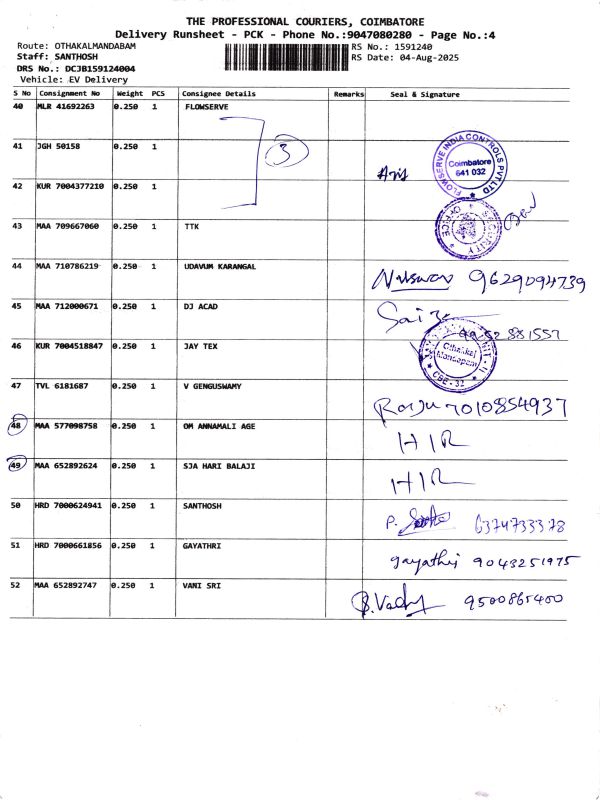 THE PROFESSIONAL COURIERS, COIMBATORE
Delivery Runsheet - PCK - Phone No.:9047080280 - Page No.:4
Route: OTHAKALMANDABAM RS No.: 1591240
Staff: SANTHOSH RS Date: 04-Aug-2025
DRS No.: DCJB159124004
Vehicle: EV Delivery
S No Consignment No Weight PCS Consignee Details Remarks Seal & Signature
40 MLR 41692263 0.250 1 FLOWSERVE
41 JGH 50158 0.250 1
3
FLOWSERVE INDIA CONTROLS PVT LTD
Coimbatore
641 032
42 KUR 7004377210 0.250 1
43 MAA 709667060 0.250 1 TTK
SECURITY OFFICE
44 MAA 710786219 0.250 1 UDAVUM KARANGAL 9629094739
45 MAA 712000671 0.250 1 DJ ACAD Sai
46 KUR 7004518847 0.250 1 JAY TEX
Othakkal
Mandapam
CBE - 32
47 TVL 6181687 0.250 1 V GENGUSWAMY Raju 7010854937
48 MAA 577098758 0.250 1 OM ANNAMALI AGE HIR
49 MAA 652892624 0.250 1 SJA HARI BALAJI HIR
50 HRD 7000624941 0.250 1 SANTHOSH P. 6374733378
51 HRD 7000661856 0.250 1 GAYATHRI gayathri 9043251975
52 MAA 652892747 0.250 1 VANI SRI 9500865400